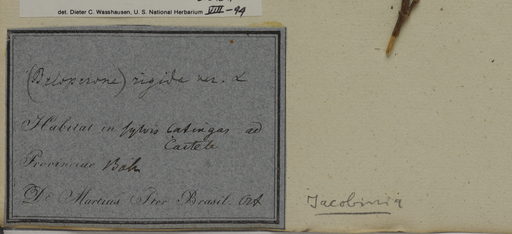 det. Dieter C. Wasshausen, U. S. National Herbarium VIII-94
(Beloperone) rigida
Habitat in sylvis Catingas ad
Provinciae Bah
Dr Martius Iter Brasil. Oct
Jacobinia